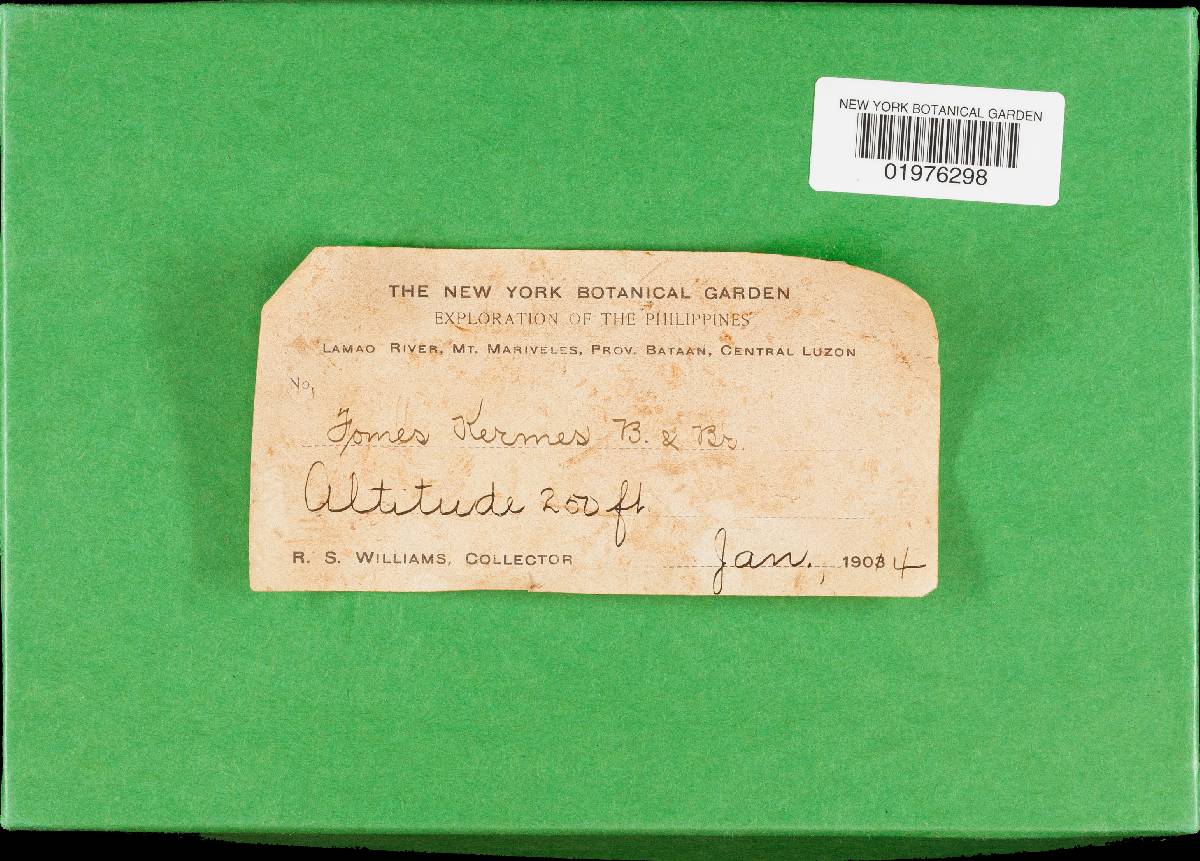 NEW YORK BOTANICAL GARDEN
01976298
THE NEW YORK BOTANICAL GARDEN
EXPLORATION OF THE PHILIPPINES
LAMAO RIVER, MT. MARIVELES, PROV. BATAAN, CENTRAL LUZON
No,
Fomes Kermes B. & Br.
Altitude 250 ft.
R. S. WILLIAMS, COLLECTOR Jan., 1903 4